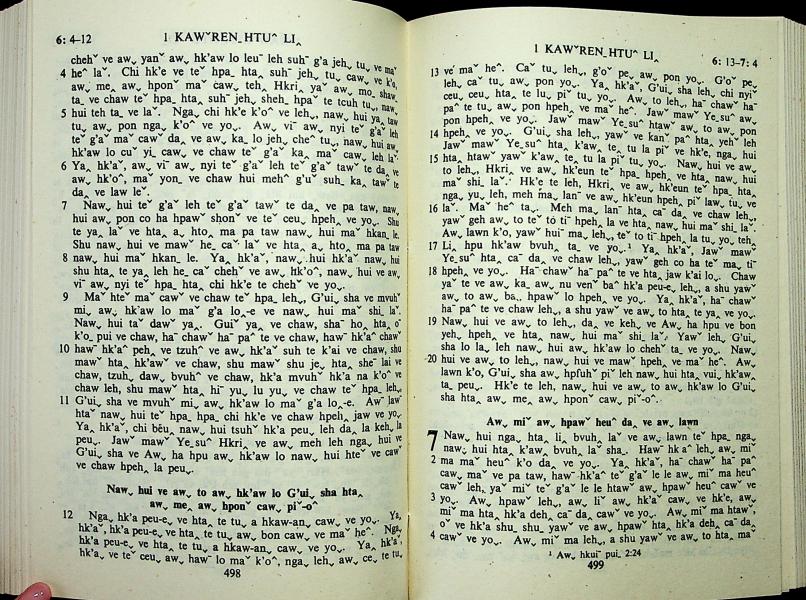 6: 4–12
1 KAWˇREN˗HTUˆ LIꞈ
chehˇ ve awˬ yanˇ awˬ hk'aw lo leuˉ leh suhˉ g'a jehˬ tuˬ ve maˇ
4 heˆ laˇ. Chi hk'e ve teˇ hpaˍ htaꞈ suhˉ jehˬ tuˬ cawˬ ve k'oˬ
awˬ meˬ awˬ hponˇ maˇ cawˬ tehˬ Hkriˬ yaˇ awˬ moˍ shawˬ
taˍ ve chaw teˇ hpaˍ htaꞈ suhˉ jehˬ shehˬ hpaˇ te tcuh tuˬ, nawˬ
5 hui teh taˍ ve laˇ. Ngaˬ chi hk'e k'oˆ ve lehˬ, nawˬ hui yaꞈ taw
tuˬ awˬ pon ngaˬ k'oˆ ve yoˬ. Awˬ viˉ awˬ nyi teˇ g'aˇ leh
teˇ g'aˇ maˇ cawˇ daꞈ ve awˬ kaˍ lo jehˬ cheˆ tuˬ, nawˬ hui awˬ
hk'aw lo cuˇ yiˍ cawˬ ve chaw teˇ g'aˇ kaꞈ maˇ cawˬ leh laˇ.
6 Yaꞈ hk'aˇ, awˬ viˉ awˬ nyi teˇ g'aˇ leh teˇ g'aˇ tawˇ te daꞈ ve
awˬ hk'oˆ, maˇ yonˍ ve chaw hui mehˆ g'uˇ suhˍ kaꞈ tawˇ te
daꞈ ve law leˇ.
7 Nawˬ hui teˇ g'aˇ leh teˇ g'aˇ tawˇ te daꞈ ve pa taw, nawˬ
hui awˬ pon co ha hpawˇ shonˇ ve teˇ ceuˬ hpehˬ ve yoˬ. Shu
te yaꞈ laˇ ve htaꞈ aˬ htoˬ ma pa taw nawˬ hui maˇ hkanˍ leˬ
Shu nawˬ hui ve mawˇ heˍ caˇ laˇ ve htaꞈ aˬ htoˬ ma pa taw
8 nawˬ hui maˇ hkanˍ le. Yaꞈ hk'aˇ, nawˬ hui hk'aˇ nawˬ hui
shu htaꞈ te yaꞈ leh heˍ caˇ chehˇ ve awˬ hk'oˆ, nawˬ hui ve awˬ
viˉ awˬ nyi teˇ hpaˍ htaꞈ chi hk'e te chehˇ ve yoˬ.
9 Maˇ hteˇ maˇ cawˇ ve chaw teˇ hpaˍ lehˬ, G'uiˬ sha ve mvuhˇ
miˬ awˬ hk'aw lo maˇ g'a loˬ-e ve nawˬ hui maˇ shiˍ laˇ.
Nawˬ hui taˇ dawˇ yaꞈ. Guiˇ yaˇ ve chaw, shaˉ hoˬ htaꞈ oˇ
k'oˬ pui ve chaw, haˉ chawˇ haˉ paˆ te ve chaw, hawˉ hk'aˆ chawˇ
10 hawˉ hk'aˆ pehꞈ ve tzuhˆ ve awˬ hk'aˇ suh te k'ai ve chaw, shu
mawˇ htaꞈ hk'awˇ ve chaw, shu mawˇ shu jeˬ htaꞈ sheˉ lai ve
chaw, tzuhˬ dawˬ bvuhˆ ve chaw, hk'a mvuhˇ hk'a na k'oˆ ve
chaw leh, shu mawˇ htaꞈ hiˉ yuˬ lu yuˬ ve chaw teˇ hpaˍ lehˬ
11 G'uiˬ sha ve mvuhˇ miˬ awˬ hk'aw lo maˇ g'a loˬ-e. Awˉ lawˇ
htaˇ nawˬ hui teˇ hpaˍ hpaˍ chi hk'e ve chaw hpehˬ jaw ve yoˬ.
Yaꞈ hk'aˇ, chi bêuˬ nawˬ hui tsuhˇ hk'a peuˬ leh daˬ la kehˬ la
peuˬ. Jawˇ mawˇ Yeˍsuˆ Hkriˬ ve awˬ meh leh ngaˬ hui ve
G'uiˬ sha ve Awˬ ha hpu awˬ hk'aw lo nawˬ hui hteˇ ve cawˇ
ve chaw hpehˬ la peuˬ.
Nawˬ hui ve awˬ to awˬ hk'aw lo G'uiˬ sha htaꞈ
awˬ meˬ awˬ hponˇ cawˬ piˇ-oˆ
12 Ngaˬ hk'a peu-eˬ ve htaꞈ te tuˬ a hkaw-anˬ cawˬ ve yoˬ. Yaꞈ
hk'aˇ, hk'a peu-eˬ ve htaꞈ te tuˬ awˬ bon cawˬ ve maˇ heˆ. Ngaˬ
hk'a peu-eˬ ve htaꞈ te tuˬ a hkaw-anˬ cawˬ ve yoˬ. Yaꞈ hk'aˇ,
hk'aˬ ve teˇ ceuˬ awˬ hawˉ lo maˇ k'oˆ, ngaˬ lehˬ awˬ ceˬ te tuˬ
498
1 KAWˇREN˗HTUˆ LIꞈ
6: 13–7: 4
13 veˇ maˇ heˆ. Caˇ tuˬ lehˬ, g'oˇ peˬ awˬ pon yoˬ. G'oˇ peˬ
lehˬ caˇ tuˬ awˬ pon yoˬ. Yaꞈ hk'aˇ, G'uiˬ sha lehˬ chi nyiˇ
ceuˬ ceuˬ htaꞈ te luˬ piˇ tuˬ yoˬ. Awˬ to lehˬ, haˉ chawˇ haˉ
paˆ te tuˬ awˬ pon hpehˬ ve maˇ heˆ. Jawˇ mawˇ Yeˍsuˆ awˬ
pon hpehˬ ve yoˬ. Jawˇ mawˇ Yeˍsuˆ htawˇ awˬ to awˬ pon
14 hpehˬ ve yoˬ. G'uiˬ sha lehˬ, yawˇ ve kanˇ paˆ htaꞈ yehˇ leh
Jawˇ mawˇ Yeˍsuˆ htaꞈ k'awꞈ teˍ tu la piˇ ve hk'e, nga, hui
15 htaꞈ htawˇ yawˇ k'awꞈ teˍ tu la piˇ tuˬ yoˬ. Nawˬ hui ve awˬ
to lehˬ, Hkriˬ ve awˬ hk'eun teˇ hpaˍ hpehˬ ve htaꞈ nawˬ hui
maˇ shiˍ laˇ. Hk'e te leh, Hkriˬ ve awˬ hk'eun teˇ hpaˍ htaꞈ
ngaˬ yuˬ leh, meh maˬ lanˉ ve awˬ hk'eun hpehˬ piˇ lawˬ tuˬ ve
16 laˇ. Maˇ heˆ taꞈ. Meh maˬ lanˉ htaꞈ caˉ daꞈ ve chaw lehˬ,
yawˇ geh awˬ to teˇ to tiˉ hpehˬ la ve htaꞈ nawˬ hui maˇ shiˍ laˇ.
Awˬ lawn k'o, yawˇ huiˉ maˬ lehˬ, teˇ to tiˉ hpehˬ la tuˬ yoˬ tehˬ
17 Liꞈ hpu hk'aw bvuh taˍ ve yoˬ.¹ Yaꞈ hk'aˇ, Jawˇ mawˇ
Yeˍsuˆ htaꞈ caˉ daꞈ ve chaw lehˬ, yawˇ geh co ha teˇ maˬ tiˉ
18 hpehˬ ve yoˬ. Haˉ chawˇ haˉ paˆ te ve htaꞈ jaw k'ai loˬ. Chaw
yaˇ te ve awˬ kaˬ awˬ nu venˇ baˆ hk'a peu-eˬ leh, a shu yawˇ
awˬ to awˬ baˍ, hpawˇ lo hpehˬ ve yoˬ. Yaꞈ hk'aˇ, haˉ chawˇ
haˉ paˆ te ve chaw lehˬ, a shu yawˇ ve awˬ to htaꞈ te yaꞈ ve yoˬ.
19 Nawˬ hui ve awˬ to lehˬ, daꞈ ve kehˬ ve Awˬ ha hpu ve bon
yehˬ hpehˬ ve htaꞈ nawˬ hui maˇ shiˍ laˇ. Yawˇ lehˬ G'uiˬ
sha lo la lehˬ nawˬ hui awˬ hk'aw lo chehˇ taˍ ve yoˬ. Nawˬ
20 hui ve awˬ to lehˬ, nawˬ hui ve mawˇ hpehˬ ve maˇ heˆ. Awˬ
lawn k'o, G'uiˬ sha awˬ hpfuhˇ piˇ leh nawˬ hui htaꞈ vuiꞈ hk'awˬ
taˍ peuˬ. Hk'e te leh, nawˬ hui ve awˬ to awˬ hk'aw lo G'uiˬ
sha htaꞈ awˬ meˬ awˬ hponˇ cawˬ piˇ-oˆ.
Awˬ miˇ awˬ hpawˇ heuˆ daꞈ ve awˬ lawn
7 Nawˬ hui nga, htaꞈ liꞈ bvuh laˇ ve awˬ lawn teˇ hpaˍ ngaˬ
nawˬ hui htaꞈ k'awˬ bvuh laˇ shaˍ. Hawˉ hkˆa lehˬ awˬ miˇ
2 ma maˇ heuˆ k'o daꞈ ve yoˬ. Yaꞈ hk'aˇ, haˉ chawˇ haˉ paˆ
cawˬ maˇ ve pa taw, hawˉ hk'aˆ teˇ g'aˇ le le awˬ miˇ ma heuˆ
caw lehˬ yaˇ miˇ teˇ g'aˇ le le htaw awˬ hpawˇ heuˆ cawˇ ve
3 yoˬ. Awˬ hpawˇ lehˬ, awˬ liˇ awˬ hk'aˇ cawˬ ve hk'e, awˬ
miˇ ma htaꞈ hk'a dehˬ caˉ daꞈ cawˇ ve yoˬ. Awˬ miˇ ma htawˇ,
oˇ ve hk'a shuˍ shuˍ yawˇ ve awˬ hpawˇ htaꞈ hk'a dehˬ caˉ daꞈ
4 cawˇ ve yoˬ. Awˬ miˇ ma lehˬ, a shu yawˇ ve awˬ to htaꞈ maˇ
¹ Awˬ hkuiˉ puiˬ 2:24
499